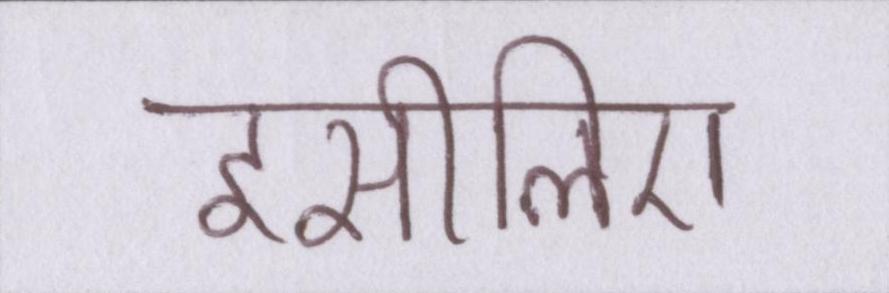 इसीलिए